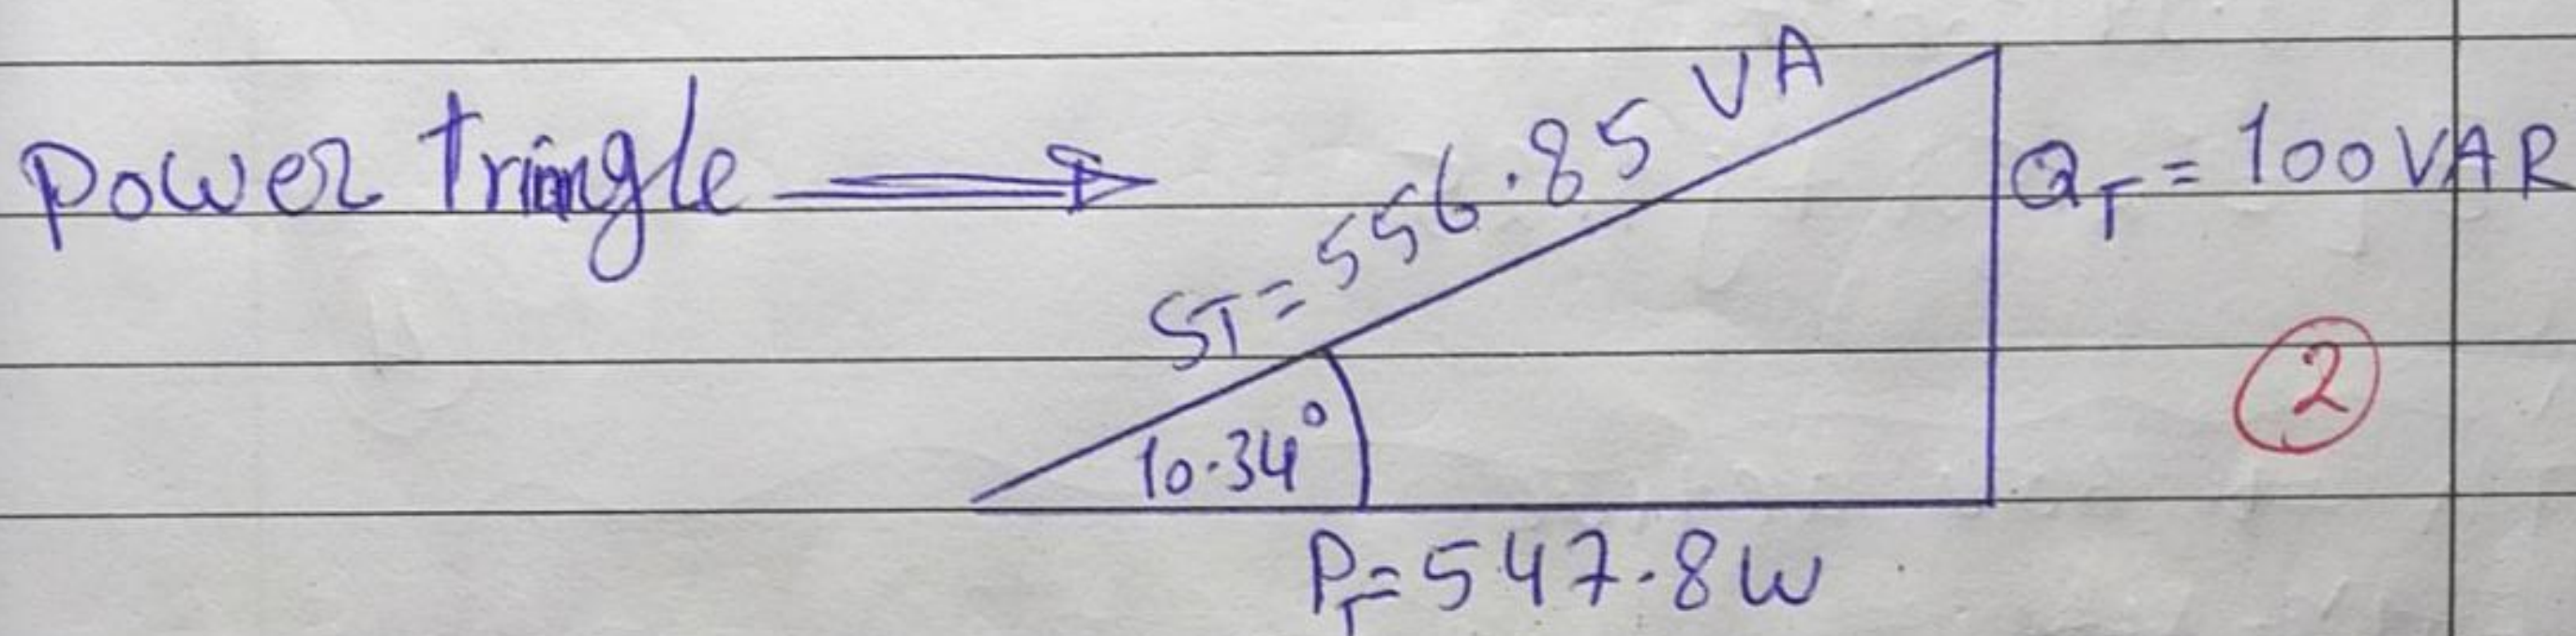 Power Tringle
ST = 556.85 VA
QT = 100 VAR
10.34°
2
PT = 547.8 W